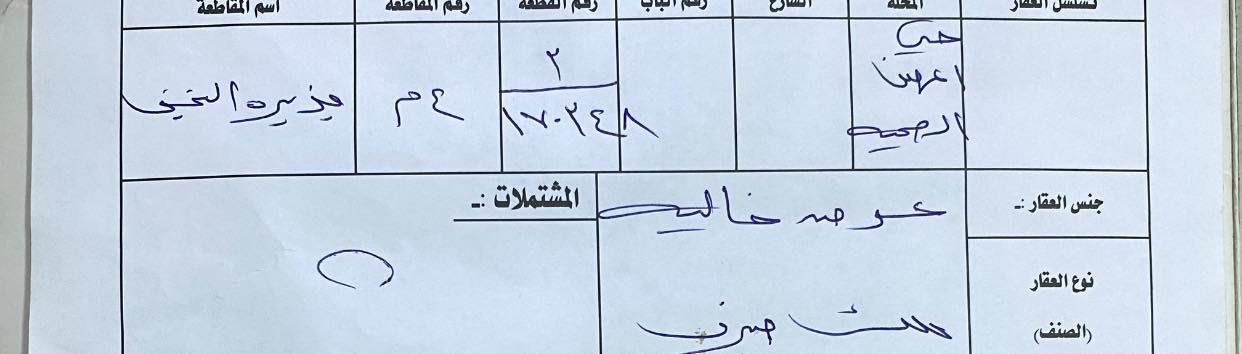 تسلسل العقار المحلة الشارع رقم الباب رقم القطعة رقم المقاطعة اسم المقاطعة
حي
المهن
الصحيه
٣
١٧٠٣٤٨
٤م
جزيره النجف
جنس العقار :ـ عرصه خاليه المشتملات :ـ
نوع العقار
(الصنف) ملك صرف